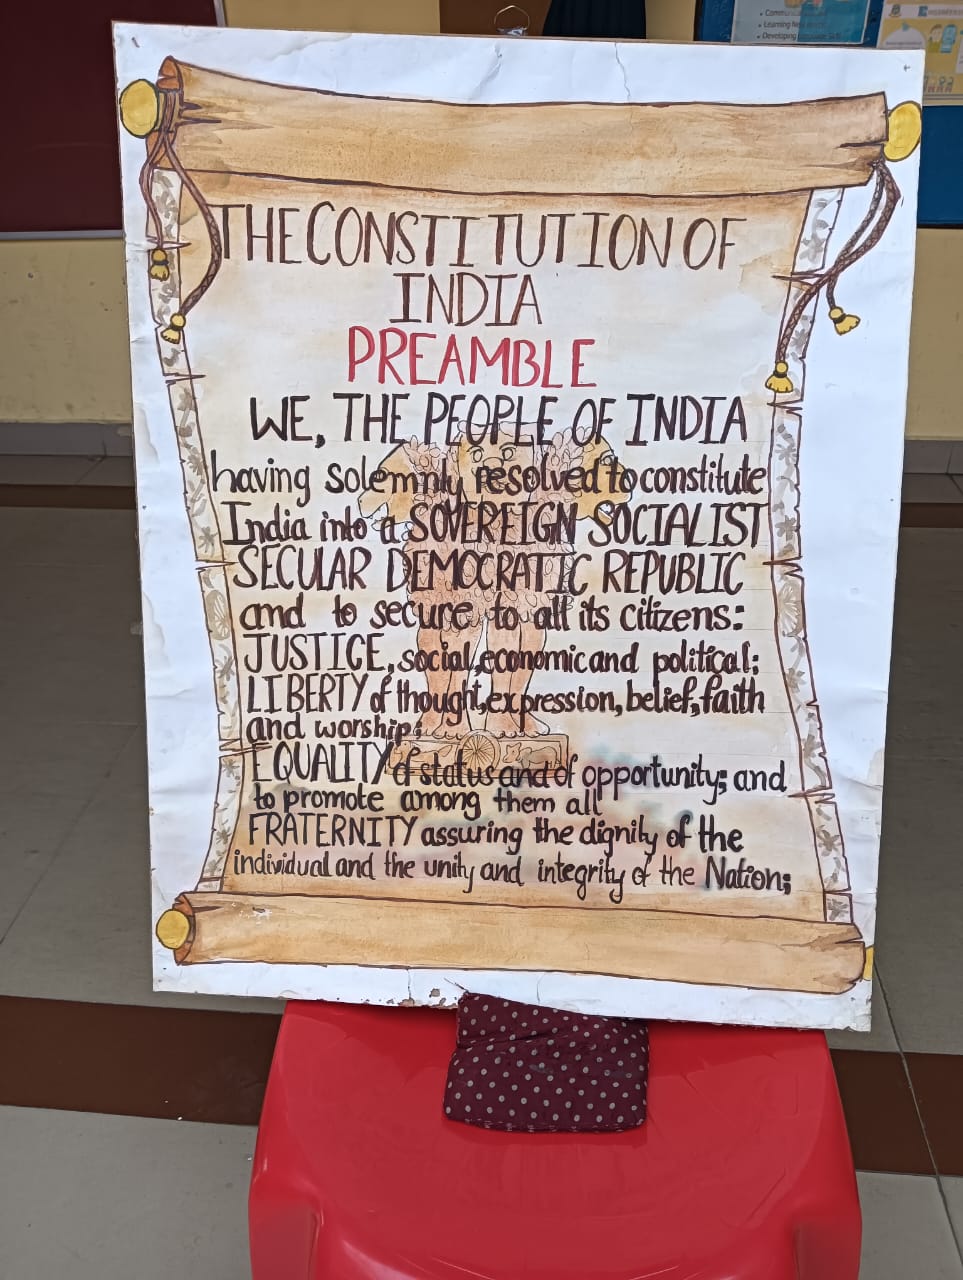 Learning New
Developing
THE CONSTITUTION OF
INDIA
PREAMBLE
WE, THE PEOPLE OF INDIA
having solemnly resolved to constitute
India into a SOVEREIGN SOCIALIST
SECULAR DEMOCRATIC REPUBLIC
and to secure to all its citizens:
JUSTICE, social, economic and political;
LIBERTY of thought, expression, belief, faith
and worship;
EQUALITY of status and of opportunity; and
to promote among them all
FRATERNITY assuring the dignity of the
individual and the unity and integrity of the Nation;